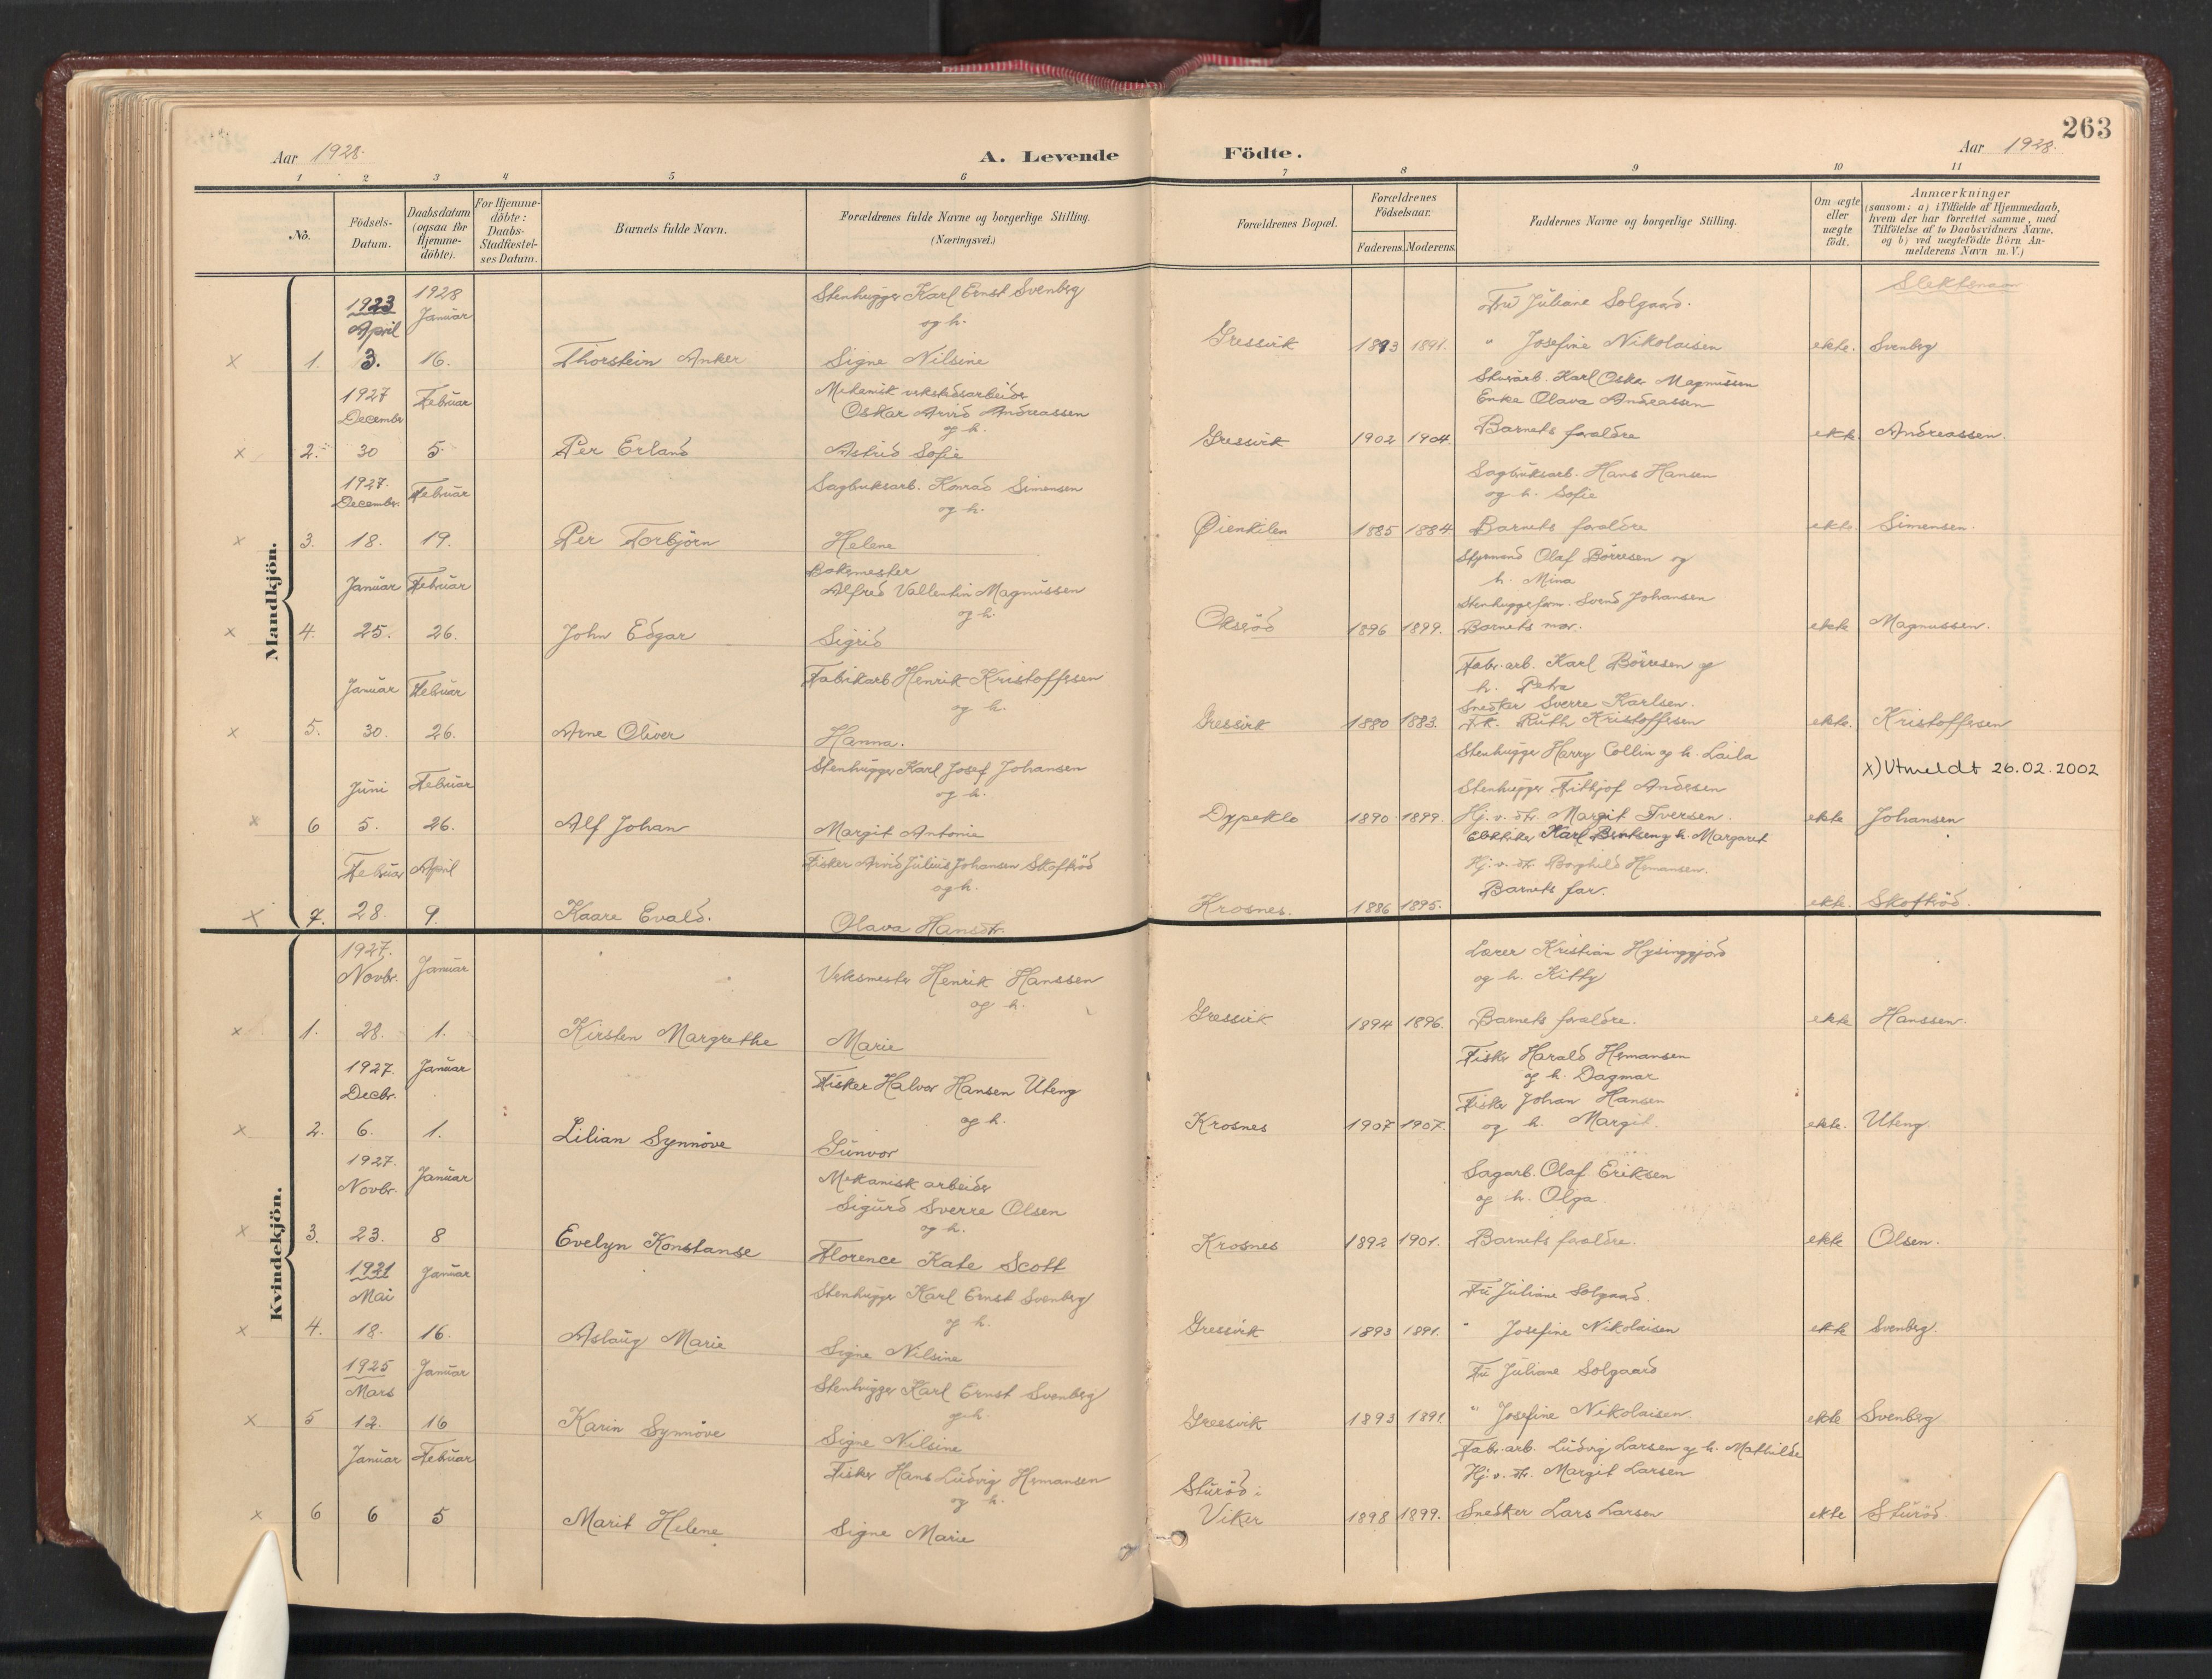 263
Aar 1928.
A. Levende Födte.
Aar 1928.
1 2 3 4 5 6 7 8 9 10 11
No.
Födsels-Datum.
Daabsdatum (ogsaa for Hjemme-döbte).
For Hjemme-döbte: Daabs-Stadfæstel-ses Datum.
Barnets fulde Navn.
Forældrenes fulde Navne og borgerlige Stilling.
(Næringsvei.)
Forældrenes Bopæl.
Forældrenes Födselsaar.
Faderens. Moderens.
Faddernes Navne og borgerlige Stilling.
Om ægte eller uægte födt.
Anmærkninger
(saasom: a) i Tilfælde af Hjemmedaab,
hvem der har forrettet samme, med
Tilföielse af to Daabsvidners Navne,
og b) ved uægtefödte Börn An-
melderens Navn m. V.)
Slektsnavn
Mandkjön.
1923 April 1928 Januar
Stenhugger Karl Ernst Svenberg
og h.
Fru Juliane Solgaard.
x 1. 3. 16. Thorstein Anker Signe Nilsine Gressvik 1893 1891. " Josefine Nikolaisen ekte. Svenberg
1927 December Februar
Mekanisk verkstedsarbeider
Oskar Arvid Andreassen
og h.
Skivarb. Karl Oskar Magnussen
Enke Olava Andreassen
x 2. 30 5. Per Erland Astrid Sofie Gressvik 1902 1904. Barnets forældre ekte. Andreassen.
1927. December. Februar
Sagbruksarb. Konrad Simensen
og h.
Sagbruksarb. Hans Hansen
og h. Sofie
x 3. 18. 19. Per Torbjörn Helene Øienkilen 1885 1884 Barnets forældre ekte. Simensen.
Januar Februar
Bakermester
Alfred Vallentin Magnussen
og h.
Styrmand Olaf Börresen og
h. Mina
Stenhuggerform. Svend Johansen
x 4. 25. 26. John Edgar Sigrid Oksrød 1896 1899. Barnets mor. ekte Magnussen.
Januar Februar
Fabrikarb Henrik Kristoffersen
og h.
Fabr. arb. Karl Börresen og
h. Petra
Snedker Sverre Karlsen.
x 5. 30. 26. Arne Oliver Hanna. Gressvik 1880 1883. Frk. Ruth Kristoffersen ekte. Kristoffersen
Juni Februar
Stenhugger Karl Josef Johansen
og h.
Stenhugger Harry Collin og h. Laila
Stenhugger Fritjof Andersen
x) Utmeldt 26.02.2002
x 6 5. 26. Alf Johan Margit Antonie Dypeklo 1890 1899. Hj. v. dtr. Margit Iversen. ekte Johansen
Februar April
Fisker Arvid Julius Johansen Skofteröd
og h.
Elektriker Karl Berntsen og h. Margaret
Hj. v. dtr. Borghild Hermansen.
x 7. 28. 9. Kaare Evald. Olava Hansdtr. Krosnes. 1886 1895. Barnets far. ekte. Skofteröd.
Kvindekjön.
1927. Novbr. Januar
Verksmester Henrik Hanssen
og h.
Lærer Kristian Hysinggjord
og h. Kitty
x 1. 28. 1. Kirsten Margrethe Marie Gressvik 1894 1896. Barnets forældre. ekte Hanssen.
1927. Decbr. Januar
Fisker Halvor Hansen Uteng
og h.
Fisker Harald Hermansen
og h. Dagmar
Fisker Johan Hansen
x 2. 6. 1. Lilian Synnöve Gunvor Krosnes 1907 1907. og h. Margit. ekte. Uteng
1927. Novbr. Januar
Mekanisk arbeider
Sigurd Sverre Olsen
og h.
Sagarb. Olaf Eriksen
og h. Olga
x 3. 23. 8 Evelyn Konstanse Florence Kate Scott Krosnes 1892 1901. Barnets forældre. ekte Olsen.
1921 Mai Januar
Stenhugger Karl Ernst Svenberg
og h.
Fru Juliane Solgaard.
x 4. 18. 16. Aslaug Marie Signe Nilsine Gressvik 1893 1891. " Josefine Nikolaisen ekte Svenberg.
1925 Mars Januar
Stenhugger Karl Ernst Svenberg
og h.
Fru Juliane Solgaard
x 5 12. 16 Karin Synnöve Signe Nilsine Gressvik 1893 1891. " Josefine Nikolaisen. ekte Svenberg
Januar Februar
Fisker Hans Ludvig Hermansen
og h.
Fabr. arb. Ludvig Larsen og h. Mathilde
Hj. v. dtr. Margit Larsen
x 6 6 5 Marit Helene Signe Marie Sturöd i Viker 1898 1899. Snedker Lars Larsen ekte Sturöd.